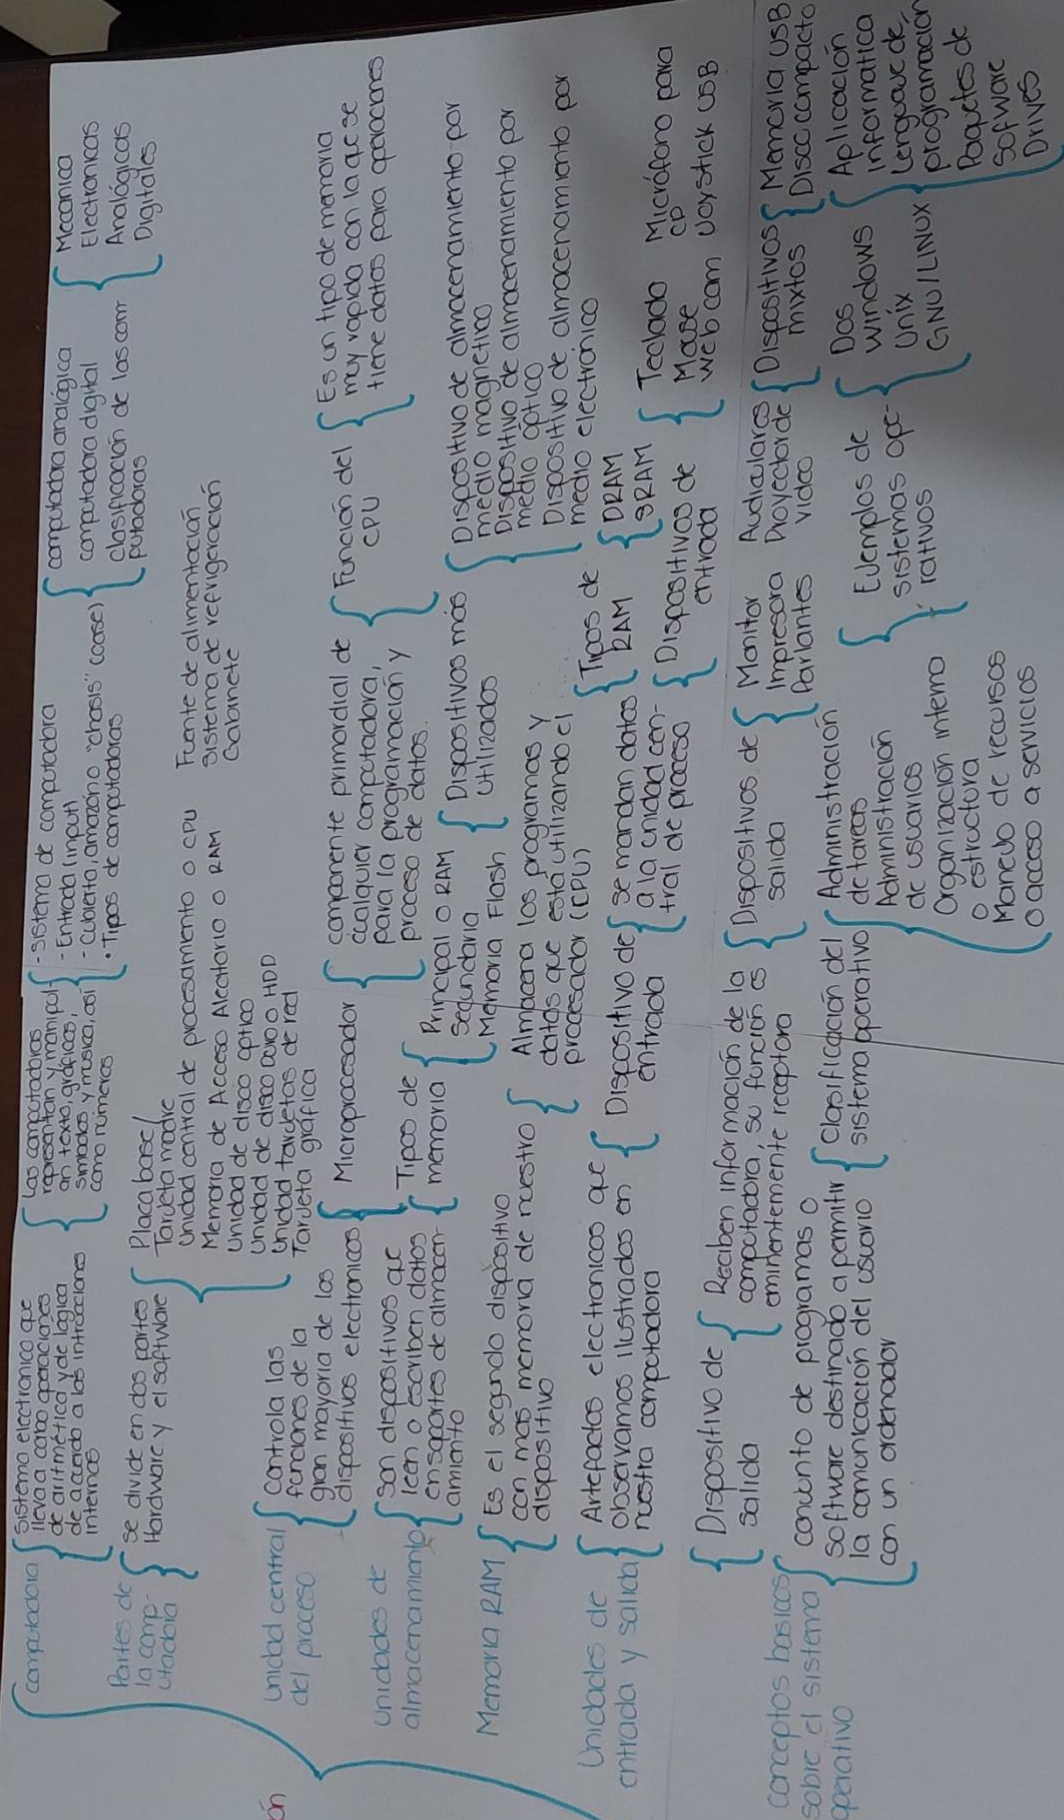 ón
computadora
Sistema electronico que
lleva a cabo operaciones
de aritmética y de logica
de acerdo a las intrcciones
internas
Las computadoras
representan y manipul-
an texto, gráficos,
simbolos y musica, así
como números
- sistema de computadora
- Entrada (input)
- Cubierta, amazón o "chasis" (case)
• Tipos de computadoras
computadora analógica
computadora digital
clasificación de las com
putadoras
Mecanica
Electronicas
Analógicas
Digitales
Partes de
la comp-
utadora
se divide en dos partes
Hardware y el software
Placa base/
Tarjeta madre
Unidad central de procesamiento o CPU
Memoria de Acceso Aleatorio o RAM
Unidad de disco optico
Unidad de disco Duro o HDD
Unidad tarjetas de red
Tarjeta gráfica
Fuente de alimentación
sistema de refrigeración
Gabinete
Unidad central
del proceso
controla las
funciones de la
gran mayoria de los
dispositivos electronicos
Microprocesador
componente primordial de
cualquier computadora,
para la programación y
proceso de datos.
Función del
CPU
Es un tipo de memoria
muy rapida con la que se
tiene datos para oparaciones
Unidades de
almacenamiento
Son dispositivos que
leen o escriben datos
en soportes de almacen-
amiento
Tipos de
memoria
Principal o RAM
Segundaria
Memoria Flash
Dispositivos más
Utilizados
Dispositivo de almacenamiento por
medio magnetico
Dispositivo de almacenamiento por
medio optico
Dispositivo de almacenamiento por
medio electronico
Memoria RAM
Es el segundo dispositivo
con mas memoria de nuestro
dispositivo
Almacena los programas y
datos que está utilizando el
procesador (CPU)
Tipos de
RAM
DRAM
SRAM
Unidades de
entrada y salida
Artefactos electronicos que
observamos ilustrados en
nuestra computadora
Dispositivo de
entrada
se mandan datos
a la unidad cen-
tral de proceso
Dispositivos de
entrada
Teclado
Mouse
Web cam
Micrófono para
CP
Joystick USB
Dispositivo de
salida
Reciben información de la
computadora, su función es
eminentemente receptora
Dispositivos de
salida
Monitor
Impresora
Parlantes
Audiculares
Proyector de
video
Dispositivos
mixtos
Memoria USB
Disco compacto
conceptos basicos
sobre el sistema
operativo
conjunto de programas o
software destinado a permitir
la comunicación del usuario
con un ordenador
Clasificación del
sistema operativo
Administración
de tareas
Administración
de usuarios
Organización interna
o estructura
Manejo de recursos
o acceso a servicios
Ejemplos de
sistemas ope-
rativos
Dos
Windows
Unix
GNU/LINUX
Aplicación
informatica
Lenguaje de
programación
Paquetes de
Sofware
Drives